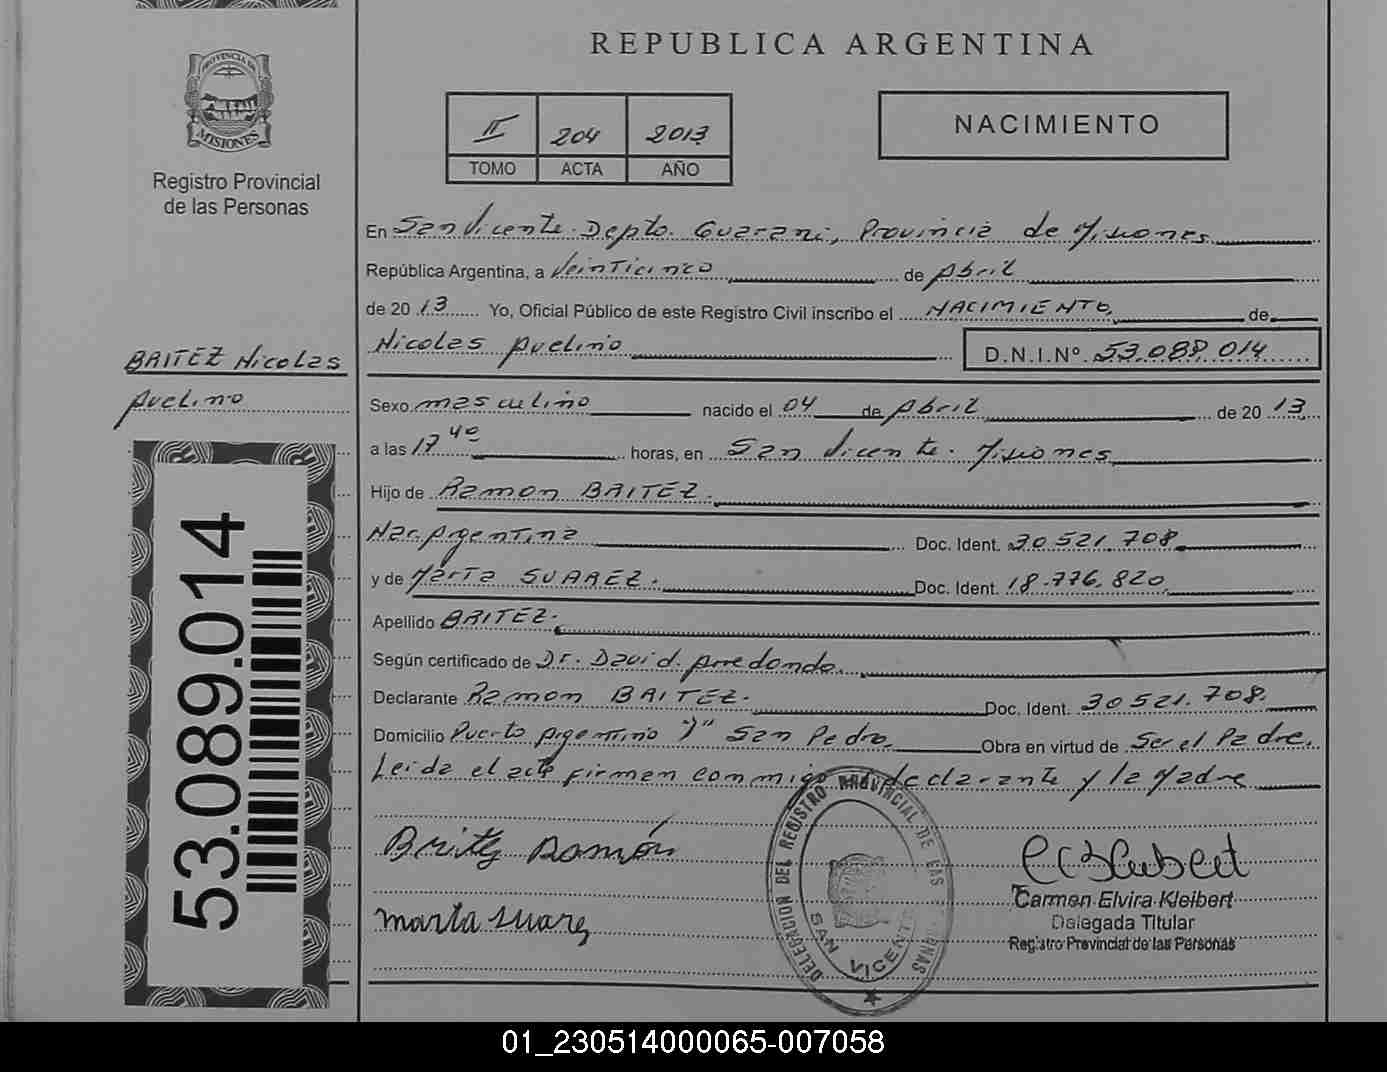 REPUBLICA ARGENTINA
PROVINCIA DE
MISIONES
Registro Provincial
de las Personas
II 204 2013
TOMO ACTA AÑO
NACIMIENTO
En San Vicente. Depto. Guarani, Provincia de Misiones
República Argentina, a Veinticinco de Abril
de 2013 Yo, Oficial Público de este Registro Civil inscribo el NACIMIENTO, de
Nicolas Avelino D.N.I.Nº 53.089.014
BRITEZ Nicolas
Avelino
Sexo masculino nacido el 04 de Abril de 2013
a las 17 40 horas, en San Vicente. Misiones
Hijo de Ramon BRITEZ.
Nac. Argentina Doc. Ident. 30 521.708
y de Marta SUAREZ. Doc. Ident. 18.776.820
Apellido BRITEZ.
Según certificado de Dr. David Arredondo.
Declarante Ramon BRITEZ. Doc. Ident. 30521.708.
Domicilio Puerto Argentino San Pedro. Obra en virtud de Ser el Padre.
Leida el acta firman conmigo declarante y la Madre
53.089.014
Britez Ramón
marta suarez
DELEGACION DEL REGISTRO PROVINCIAL DE LAS PERSONAS
SAN VICENTE
Carmen Elvira Kleibert
Delegada Titular
Registro Provincial de las Personas
01_230514000065-007058